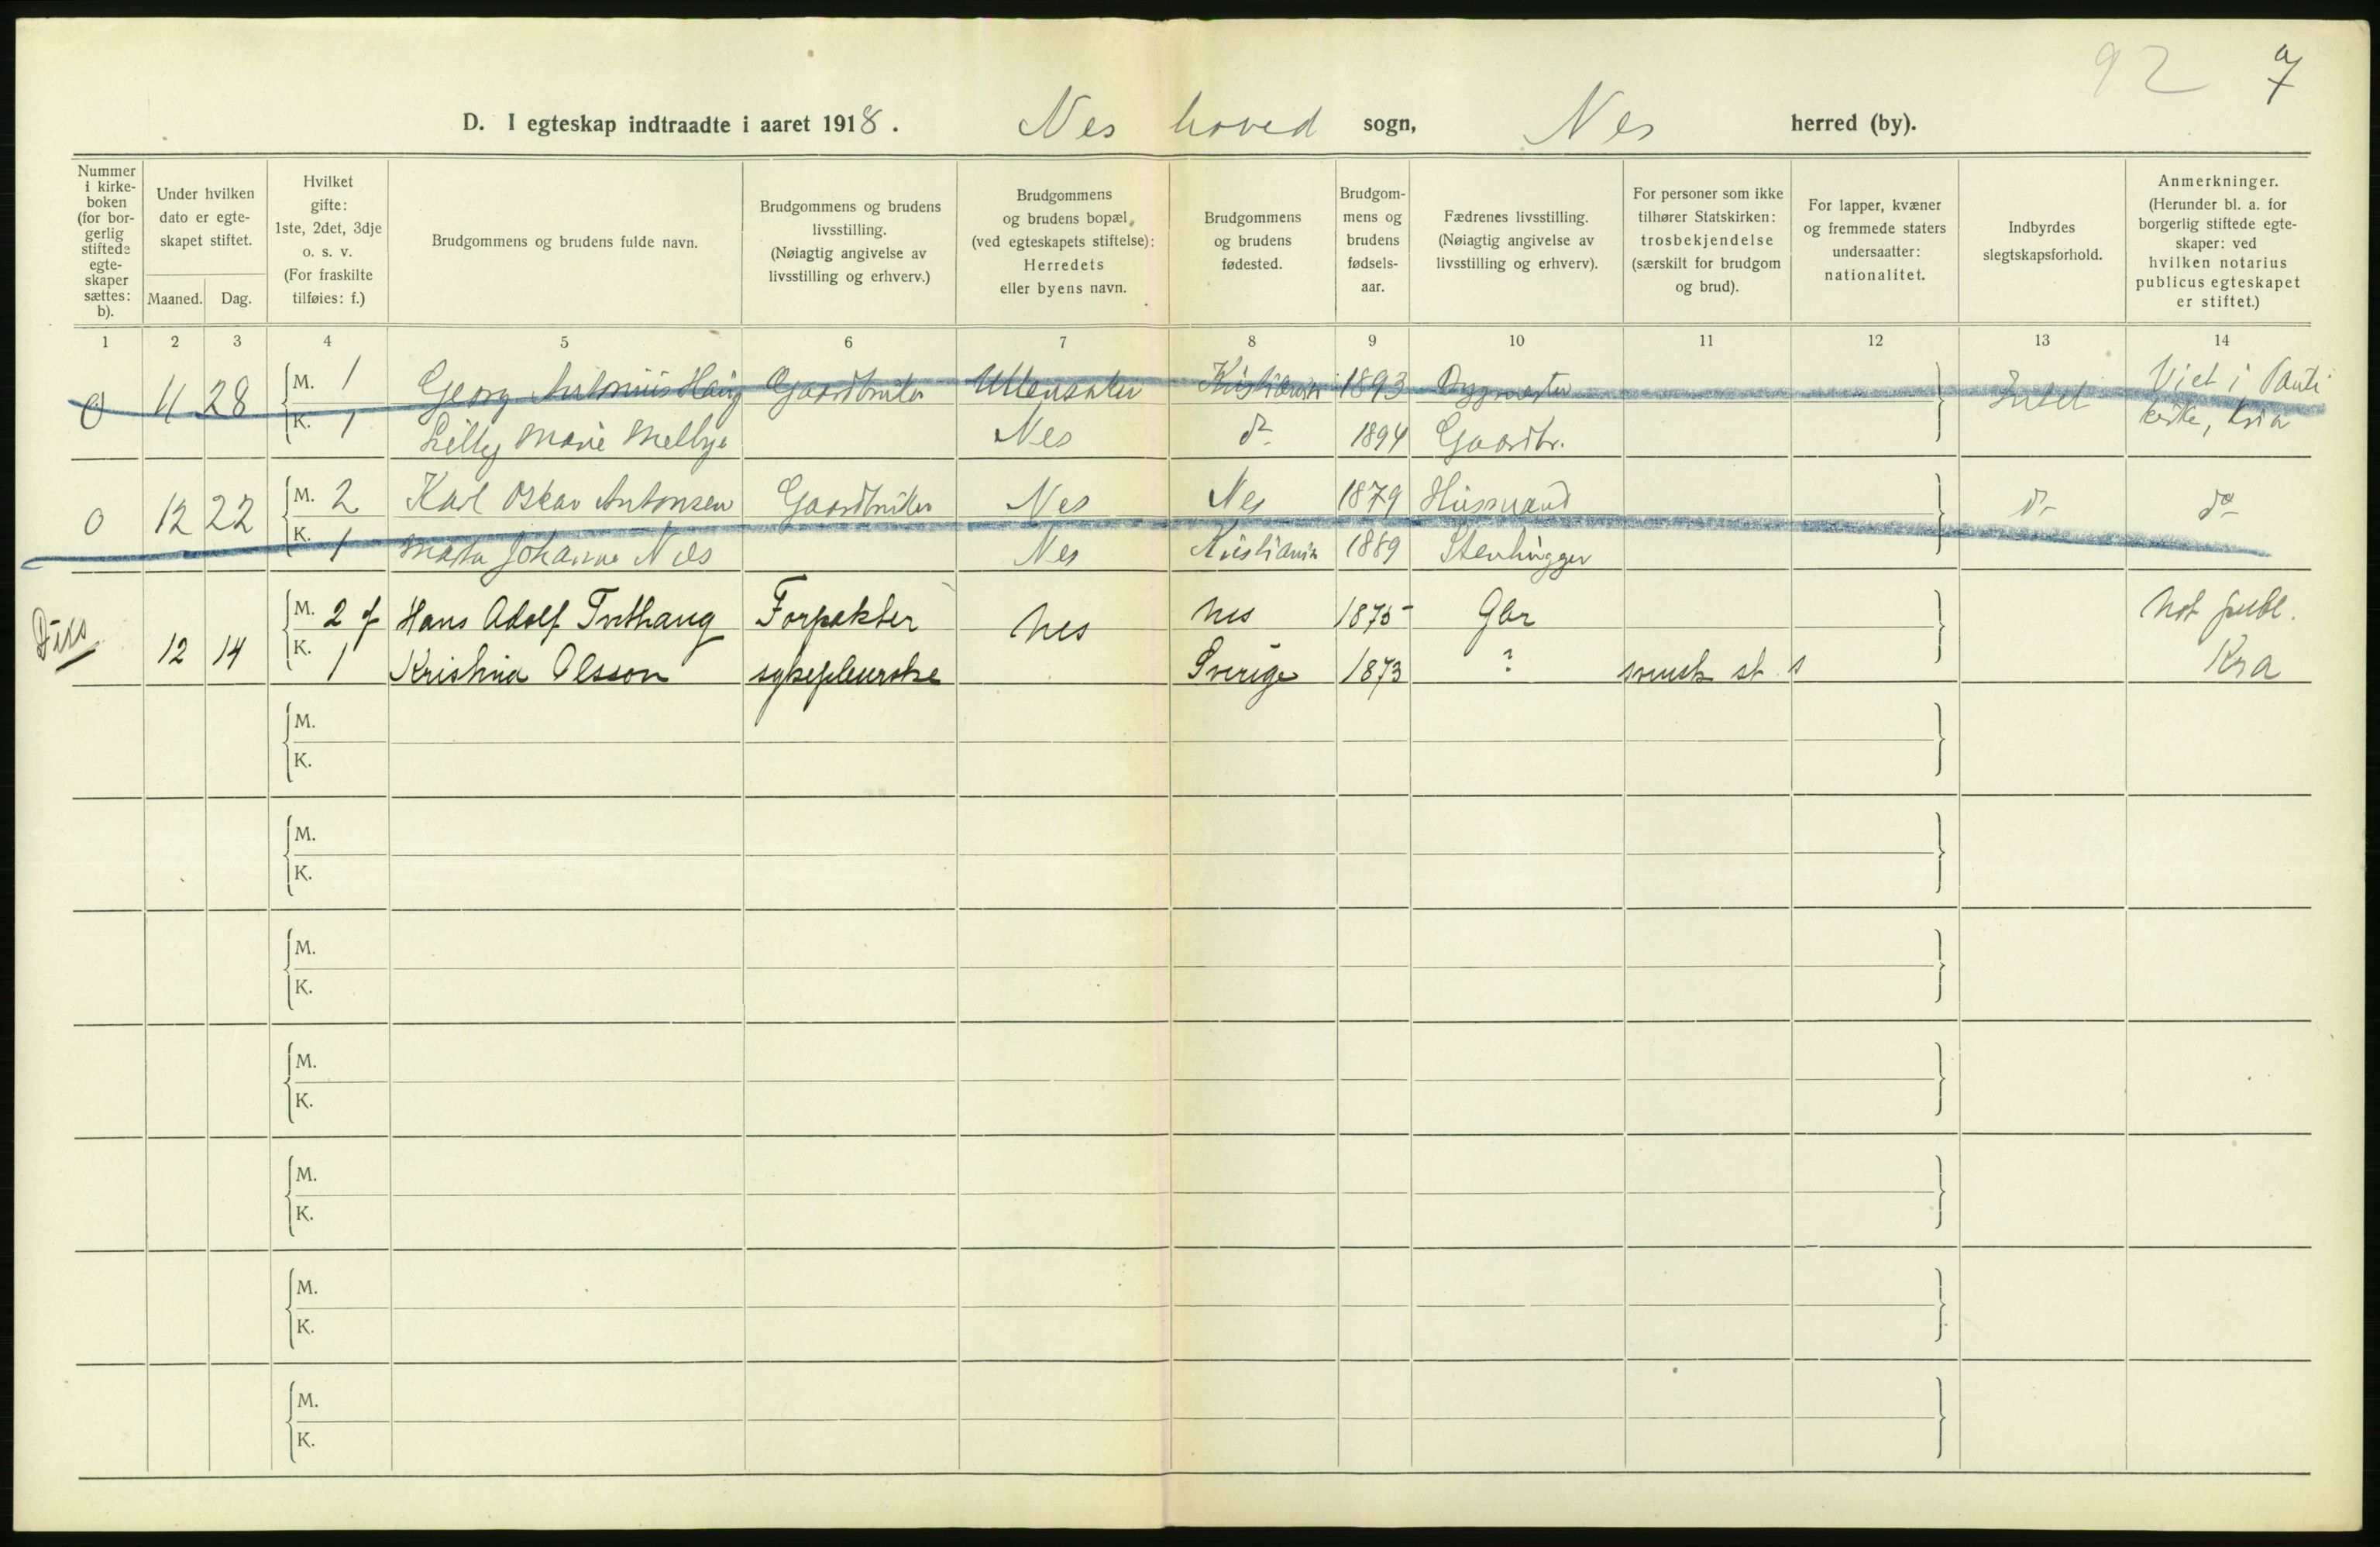 92 7
D. I egteskap indtraadte i aaret 1918. Nes hoved sogn, Nes herred (by).
Nummer i kirke- boken (for bor- gerlig stiftede egte- skaper sættes: b).
Under hvilken dato er egte- skapet stiftet.
Maaned. Dag.
Hvilket gifte: 1ste, 2det, 3dje o. s. v. (For fraskilte tilføies: f.)
Brudgommens og brudens fulde navn.
Brudgommens og brudens livsstilling. (Nøiagtig angivelse av livsstilling og erhverv.)
Brudgommens og brudens bopæl. (ved egteskapets stiftelse): Herredets eller byens navn.
Brudgommens og brudens fødested.
Brudgom- mens og brudens fødsels- aar.
Fædrenes livsstilling. (Nøiagtig angivelse av livsstilling og erhverv).
For personer som ikke tilhører Statskirken: trosbekjendelse (særskilt for brudgom og brud).
For lapper, kvæner og fremmede staters undersaatter: nationalitet.
Indbyrdes slegtskapsforhold.
Anmerkninger. (Herunder bl. a. for borgerlig stiftede egte- skaper: ved hvilken notarius publicus egteskapet er stiftet.)
1 2 3 4 5 6 7 8 9 10 11 12 13 14
0 11 28 M. 1 Georg Antonius Haug Gaardbruker Ullensaker Kristiania 1893 Bygmester Intet Viet i Pauls
K. 1 Lilly Marie Melbye Nes do 1894 Gaardbr. kirke, Kria
0 12 22 M. 2 Karl Oskar Antonsen Gaardbruker Nes Nes 1879 Husmand do do
K. 1 Johanne Nes Kristiania 1889 Stenhugger
Diss 12 14 M. 2 f Hans Adolf Tvethaug Forpakter Nes Nes 1875 Gbr Not publ.
K. 1 Kristina Olsson sykepleierske Sverige 1873 ? svensk st s Kra
M.
K.
M.
K.
M.
K.
M.
K.
M.
K.
M.
K.
M.
K.